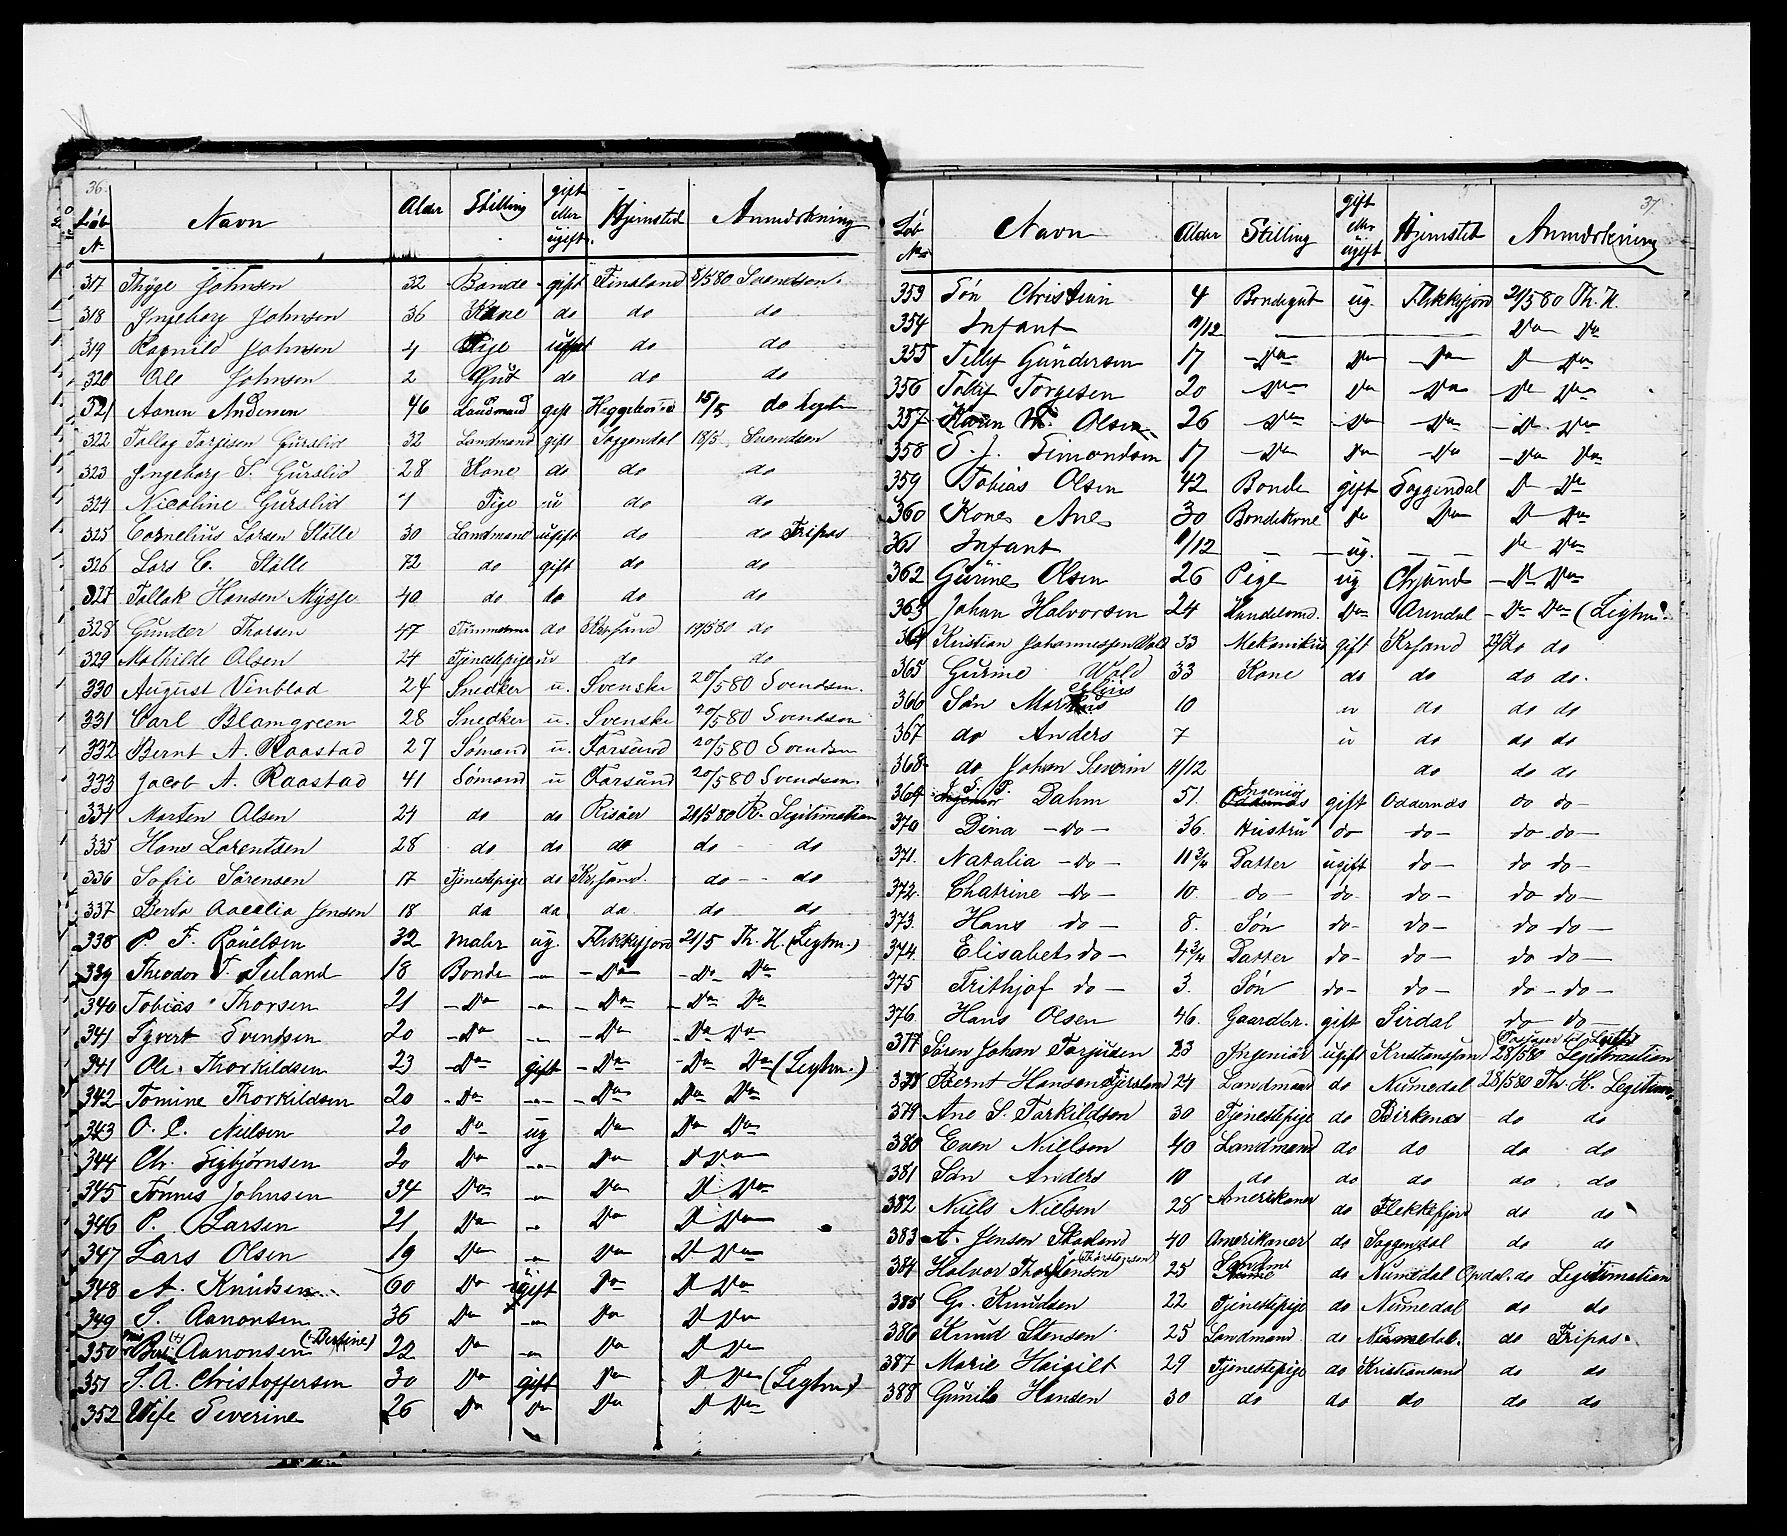 36.
Løb No Navn Alder Stilling gift eller ugift Hjemsted Anmærkning
317 Thyge Johnsen 32 Bonde gift Finsland 8/5 80 Svendsen.
318 Ingeborg Johnsen 36 Kone do do do
319 Ragnild Johnsen 4 Pige ugift do do
320 Ole Johnsen 2 Gut do do do
321 Aanen Andersen 46 Landmand gift 15/5 do Legtm
322 Tallag Torgisen Gurslid 32 Landmand gift Soggendal 18/5 Svendsen
323 Ingeborg T. Gurslid 28 Kone do do do
324 Nicoline Gurslid 7 Pige u do do
325 Cornelius Larsen Ställe 30 Landmand ugift do do Fripas
326 Lars C. Ställe 72 do gift do do
327 Tallak Hansen Mysse 40 do do do do
328 Gunder Thorsen 47 Tømmerm do Krsand 19/5 80 do
329 Mathilde Olsen 24 Tjenestepige u do do
330 August Vinblad 24 Snedker u. Svenske 20/5 80 Svendsen.
331 Carl Blomgreen 28 Snedker u. Svenske 20/5 80 Svendsen
332 Bernt A. Raastad 27 Sømand u. Farsund 20/5 80 Svendsen
333 Jacob A. Raastad 41 Sømand u Farsund 20/5 80 Svendsen.
334 Morten Olsen 24 do do Risöer 21/5 80 R. Legitimation
335 Hans Lorentsen 28 do do do do do
336 Sofie Sörensen 17 Tjenestepige do Krsand. do do
337 Berta Amalia Jensen 18 do do do do do
338 P. F. Rouelsen 32 Maler ug. Flekkefjord 21/5 Th. H. (Legtm.)
339 Theodor T. Seiland 18 Bonde -„- Do Do Do
340 Tobias Thorsen 21 Do -„- Do Do Do
341 Syvert Svendsen 20 Do -„- Do Do Do
341 Ole Thorkildsen 23 Do gift Do Do Do (Legtm.)
342 Tomine Thorkildsen 20 Do -„- Do Do Do
343 O. C. Nielsen 20 Do ug Do Do Do
344 Ch. Sigbjørnsen 20 Do -„- Do D Do
345 Tønnes Johnsen 34 Do -„- Do D Do
346 P. Larsen 21 Do -„- Do D Do
347 Lars Olsen 19 Do -„- Do D Do
348 A. Knudsen 60 Do ugift Do D Do
349 S. Aanonsen 36 Do -„- Do D Do
350 Aanonsen (Bertine) 22 Do -„- Do D Do
351 S. A. Christoffersen 30 Do gift Do D Do (Legtm)
352 Wife Severine 26 Do Do Do D Do
37.
Løb No Navn Alder Stilling gift eller ugift Hjemsted Anmærkning
353 Søn Christian 4 Bondegut ug. Flekkefjord 21/5 80 Th. H.
354 Infant 11/12 — — Do Do
355 Tellef Gundersen 17 Do Do Do D Do
356 Tollef Torgesen 20 Do Do Do Do Do
357 Karen Olsen 26 Do Do Do Do Do
358 S. J. Simondsen 17 Do Do Do Do Do
359 Tobias Olsen 42 Bonde gift Soggendal D Do
360 Kones Ane 30 Bondekone Do Do D Do
361 Infant 11/12 — ug. — — Do Do
362 Gurine Olsen 26 Pige ug Do Do
363 Johan Halvorsen 24 Handelsmd. Do Arendal Do Do (Legtm.
364 Kristian Johannessen Wold 33 Mekanikus gift Krsand do do
365 Gurine Wold 33 Kone do do do do.
366 Søn 10 u do do do
367 do Anders 7 u do do do
368 do Johan Severin 11/12 do do do
369 J. S. P. Dahm 51. Ingeniør gift Oddernæs do do
370 Dina — do — 36. Hustru do do do do
371. Natalia — do — 11 3/4 Datter ugift do do do
372. Chatrine do 10. do do do do do
373. Hans do 8. Søn do do do do
374. Elisabet do 4 3/4 Datter do do do do
375 Frithjof do 3. Søn do do do do
376. Hans Olsen 46. Gaardbr. gift Sirdal do do
377 Søren Johan Torjusen 23 Ingeniør ugift Kristiansand 28/5 80 Legitimation
378 Bernt Hansen 24 Landmand do Numedal 28/5 80 Th. H. Legitim
379 Ane S. Tarkildsen 30 Tjenestepige do Birkenæs do do
380 Even Niellson 40 Landmand do do do do
381 Søn Anders 10 do do do do do
382 Niels Nielson 28 Amerikaner do Flekkefjord do do
383 A. Jenson Skoland 40 Amerikaner do Soggendal do do
384 Halvor Thorstenson (Thorstenson) 25 do Numedal Opdal. do Legitimation
385 G. Knudsen 22 Tjenestepige do Numedal do do
386 Knud Stensen 25 Landmand. do Numedal. do Fripas.
387 Marie Haigilt 29 Tjenestepige do Kristiansand do do
388 Gunild Hansen 30 do do do do do